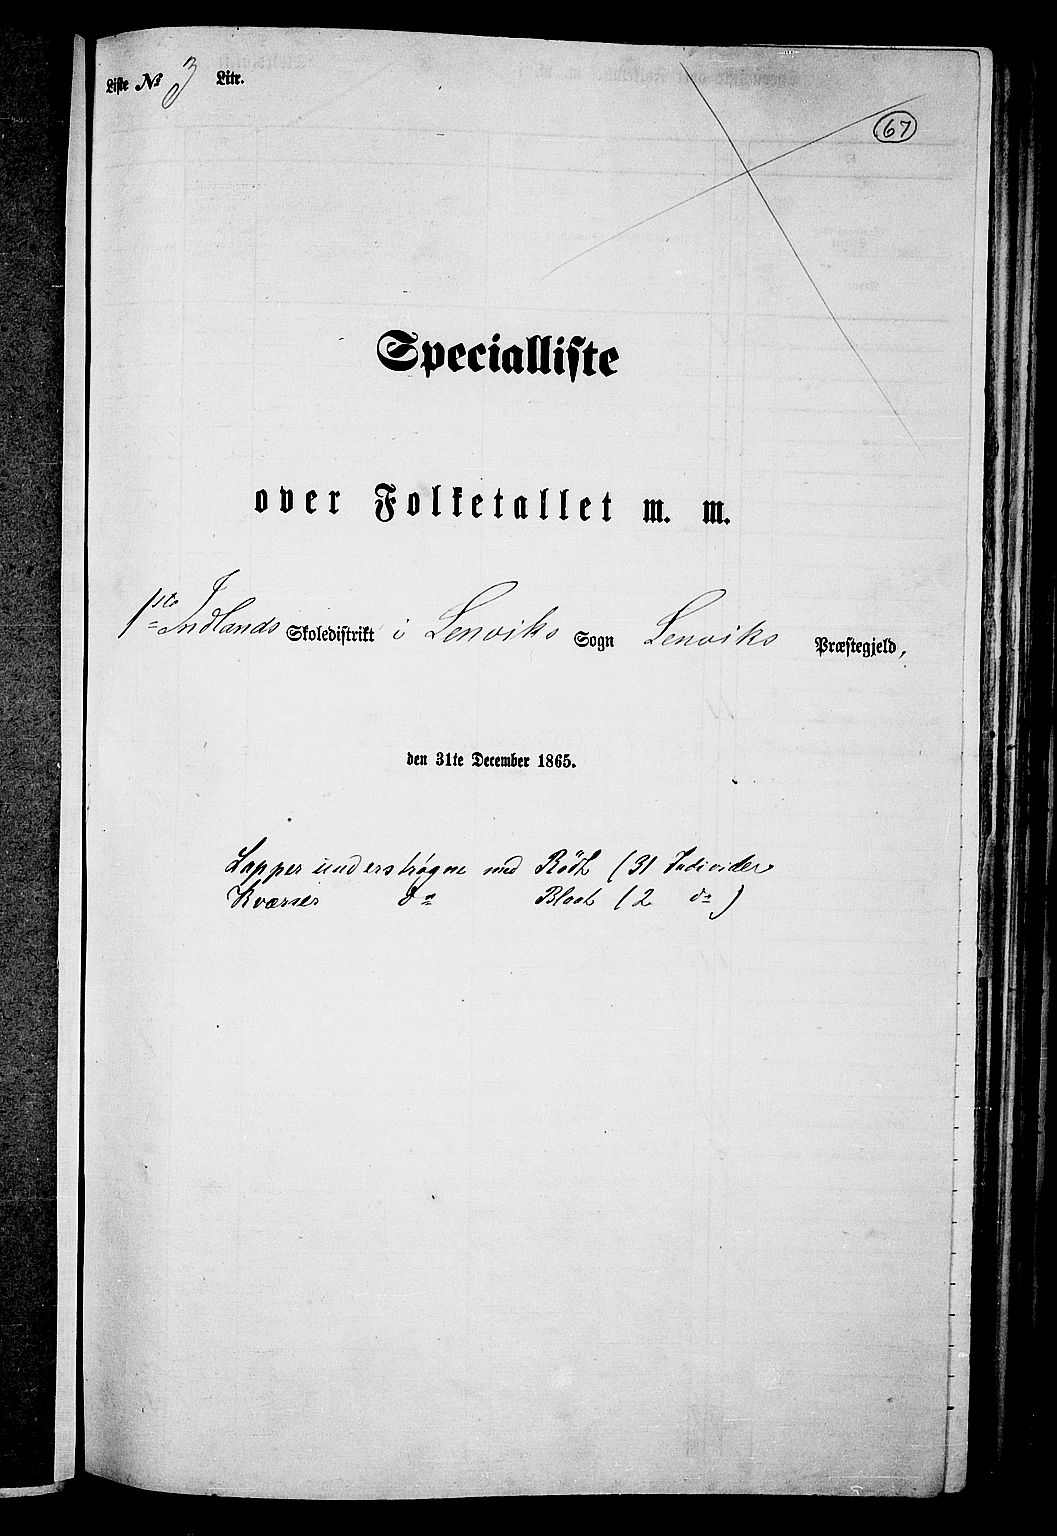 Liste № 3 Litr.
67
Specialliste
over Folketallet m. m.
Indlands Skoledistrikt i Lenviks Sogn Lenviks Præstegjeld,
den 31te December 1865.
Lapper understrøgne med Rödt (31 Individer
Kvæner do Blaat (2 do)